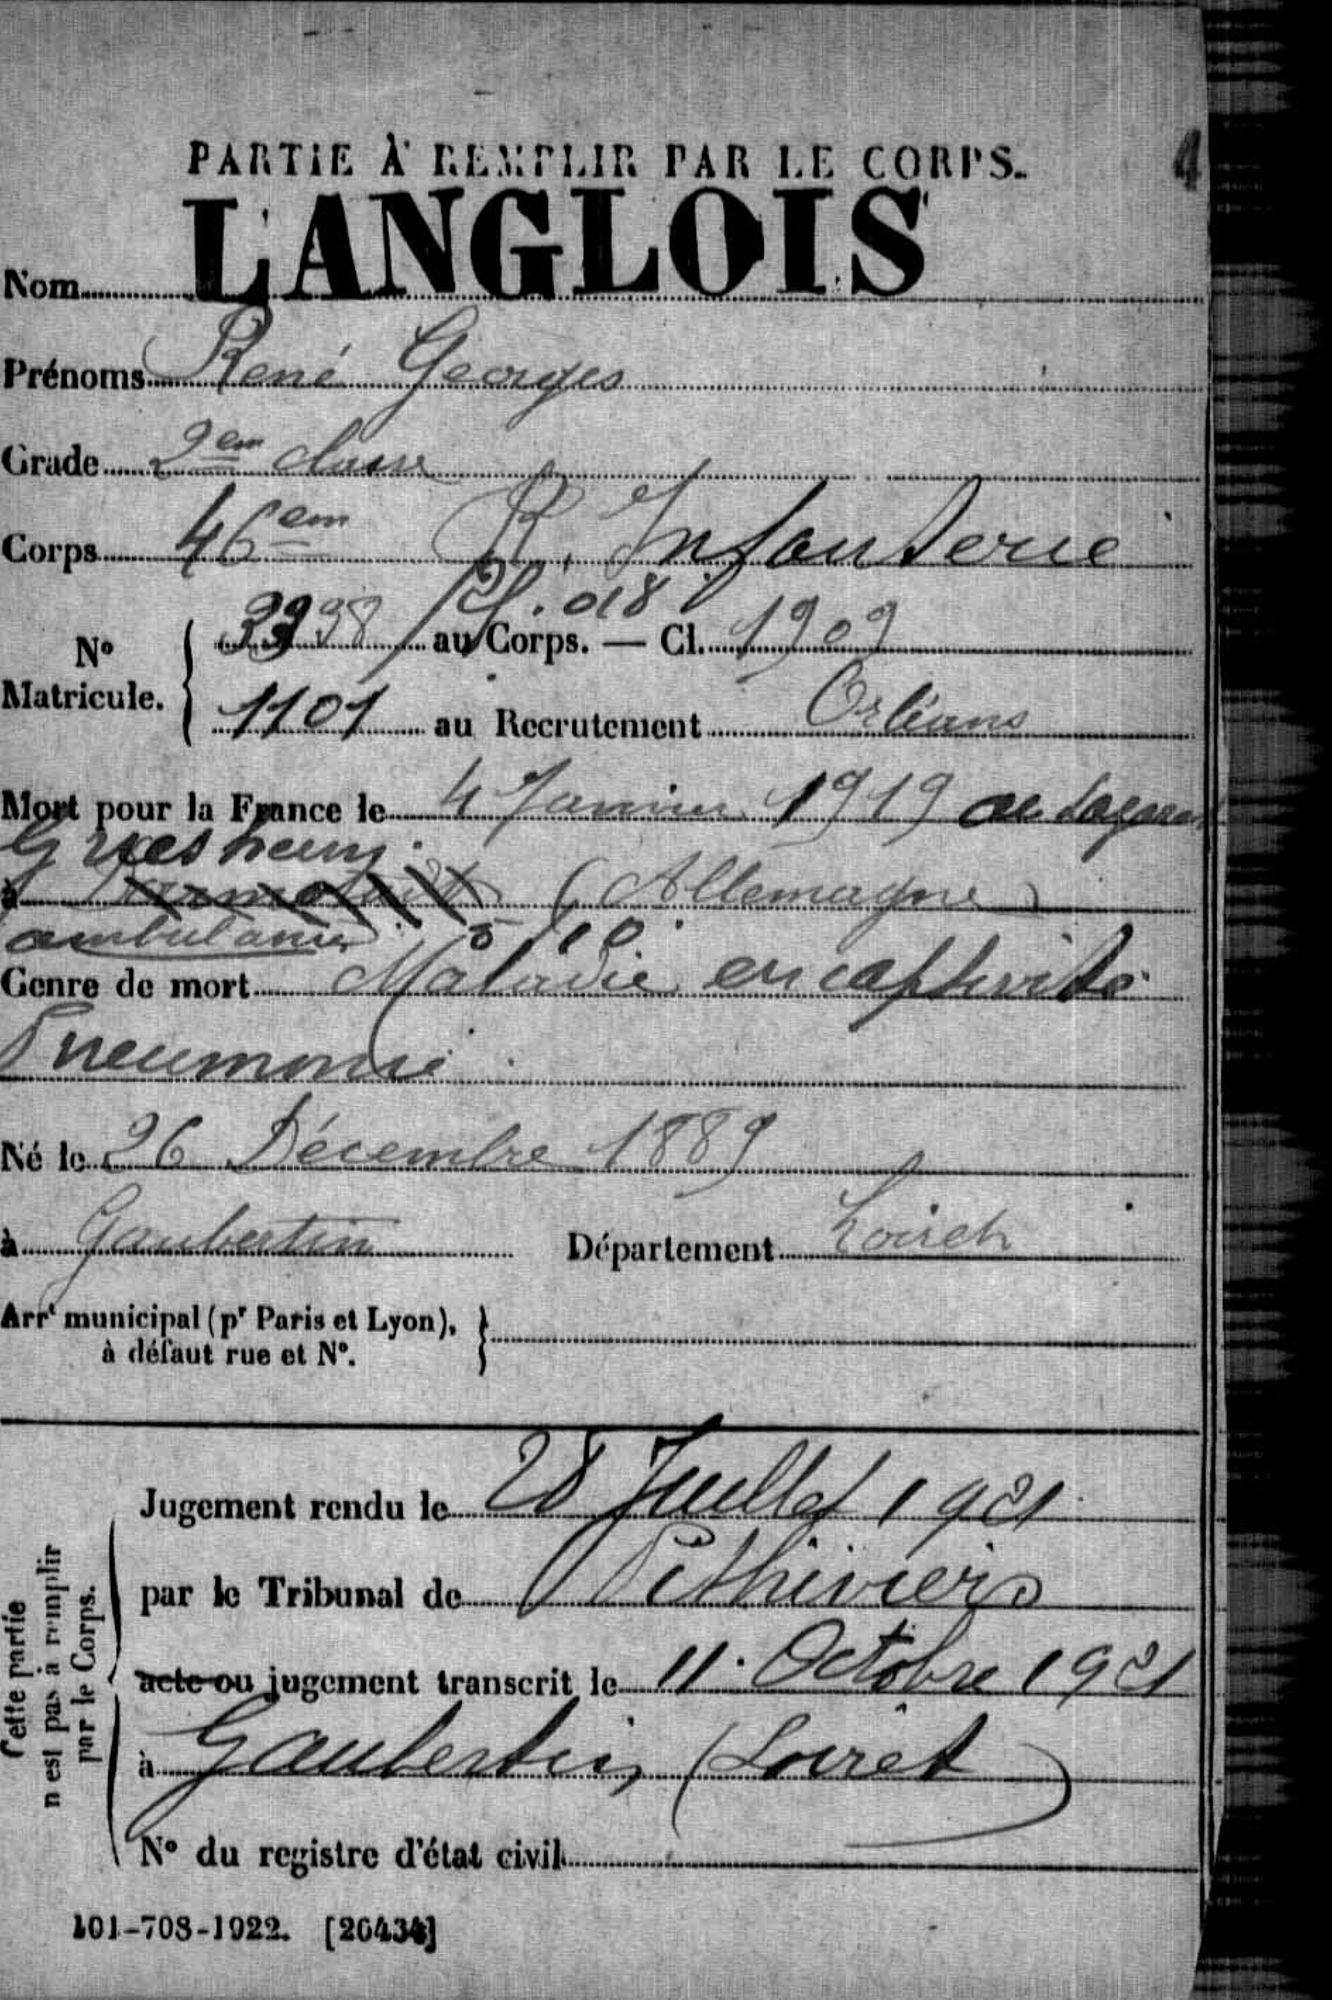 4
PARTIE À REMPLIR PAR LE CORPS.
Nom LANGLOIS
Prénoms René Georges
Grade 2em classe
Corps 46em R. Infanterie
N° Matricule. { 3398 au Corps. — Cl. 1909
1101 au Recrutement Orléans
Mort pour la France le 4 Janvier 1919 au
Griesheim
à (Allemagne)
ambulance 5/10
Genre de mort Maladie en captivité
Pneumonie
Né le 26 Décembre 1889
à Gaubertin Département Loiret
Arrt municipal (pr Paris et Lyon),
à défaut rue et N°.
Cette partie
n'est pas à remplir
par le Corps.
Jugement rendu le 28 Juillet 1921
par le Tribunal de Pithiviers
acte ou jugement transcrit le 11 Octobre 1921
à Gaubertin (Loiret)
N° du registre d'état civil
101-708-1922. [26434]